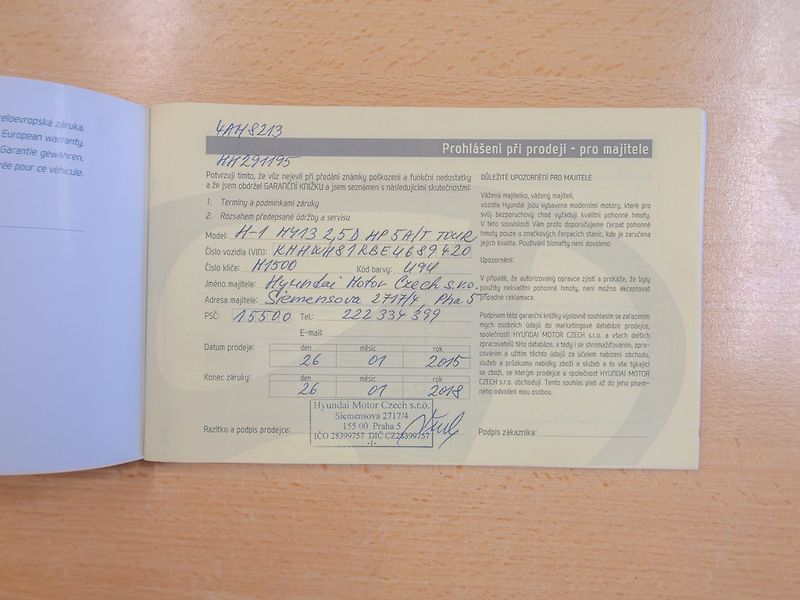 eloevropská záruka.
European warranty.
Garantie gewähren.
rée pour ce véhicule.
4AH8213
Prohlášení při prodeji - pro majitele
HH291195
Potvrzuji tím, že vůz nejevil při předání známky poškození a funkční nedostatky
a že jsem obdržel GARANČNÍ KNÍŽKU a jsem seznámen s následujícími skutečnostmi:
1. Termíny a podmínkami záruky
2. Rozsahem předepsané údržby a servisu
Model: H-1 MY13 2,5D HP 5A/T TOUR
Číslo vozidla (VIN): KMHWH81KBEU689420
Číslo klíče: M1500 Kód barvy: U94
Jméno majitele: Hyundai Motor Czech s.r.o.
Adresa majitele: Siemensova 2717/4, Pha 5
PSČ: 15500 Tel.: 222 334 399
E-mail:
Datum prodeje: den měsíc rok
26 01 2015
Konec záruky: den měsíc rok
26 01 2018
Hyundai Motor Czech s.r.o.
Siemensova 2717/4
155 00 Praha 5
IČO 28399757 DIČ CZ28399757
-1-
Razítko a podpis prodejce:
DŮLEŽITÉ UPOZORNĚNÍ PRO MAJITELE
Vážená majitelko, vážený majiteli,
vozidla Hyundai jsou vybavena moderními motory, které pro
svůj bezporuchový chod vyžadují kvalitní pohonné hmoty.
V této souvislosti Vám proto doporučujeme čerpat pohonné
hmoty pouze u značkových čerpacích stanic, kde je zaručena
jejich kvalita. Používání bionafty není dovoleno.
Upozornění:
V případě, že autorizovaný opravce zjistí a prokáže, že byly
použity nekvalitní pohonné hmoty, není možno akceptovat
případné reklamace.
Podpisem této garanční knížky výslovně souhlasím se zařazením
mých osobních údajů do marketingové databáze prodejce,
společnosti HYUNDAI MOTOR CZECH s.r.o. a všech dalších
zpracovatelů této databáze, a tedy i se shromažďováním, zpra-
cováním a užitím těchto údajů za účelem nabízení obchodu,
služeb a průzkumu nabídky zboží a služeb a to vše týkající
se zboží, se kterým prodejce a společnost HYUNDAI MOTOR
CZECH s.r.o. obchodují. Tento souhlas platí až do jeho písem-
ného odvolání mou osobou.
Podpis zákazníka: